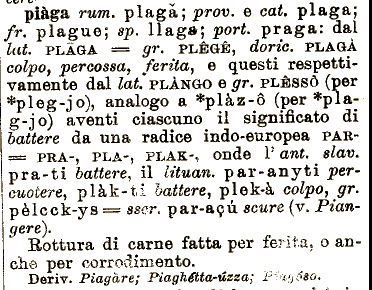 piàga rum. plagă; prov. e cat. plaga;
fr. plague; sp. llaga; port. praga: dal
lat. PLÂGA = gr. PLÊGÊ, doric. PLAGÀ
colpo, percossa, ferita, e questi respetti-
vamente dal lat. PLÀNGO e gr. PLÊSSÔ (per
*pleg-jo), analogo a *plàz-ô (per *pla-
g-jo) aventi ciascuno il significato di
battere da una radice indo-europea PAR-
= PRA-, PLA-, PLAK-, onde l'ant. slav.
pra-ti battere, il lituan. par-anyti per-
cuotere, plàk-ti battere, plek-à colpo, gr.
pèlcck-ys = sscr. par-açú scure (v. Pian-
gere).
Rottura di carne fatta per ferita, o an-
che per corrodimento.
Deriv. Piagàre; Piaghétta-úzza;